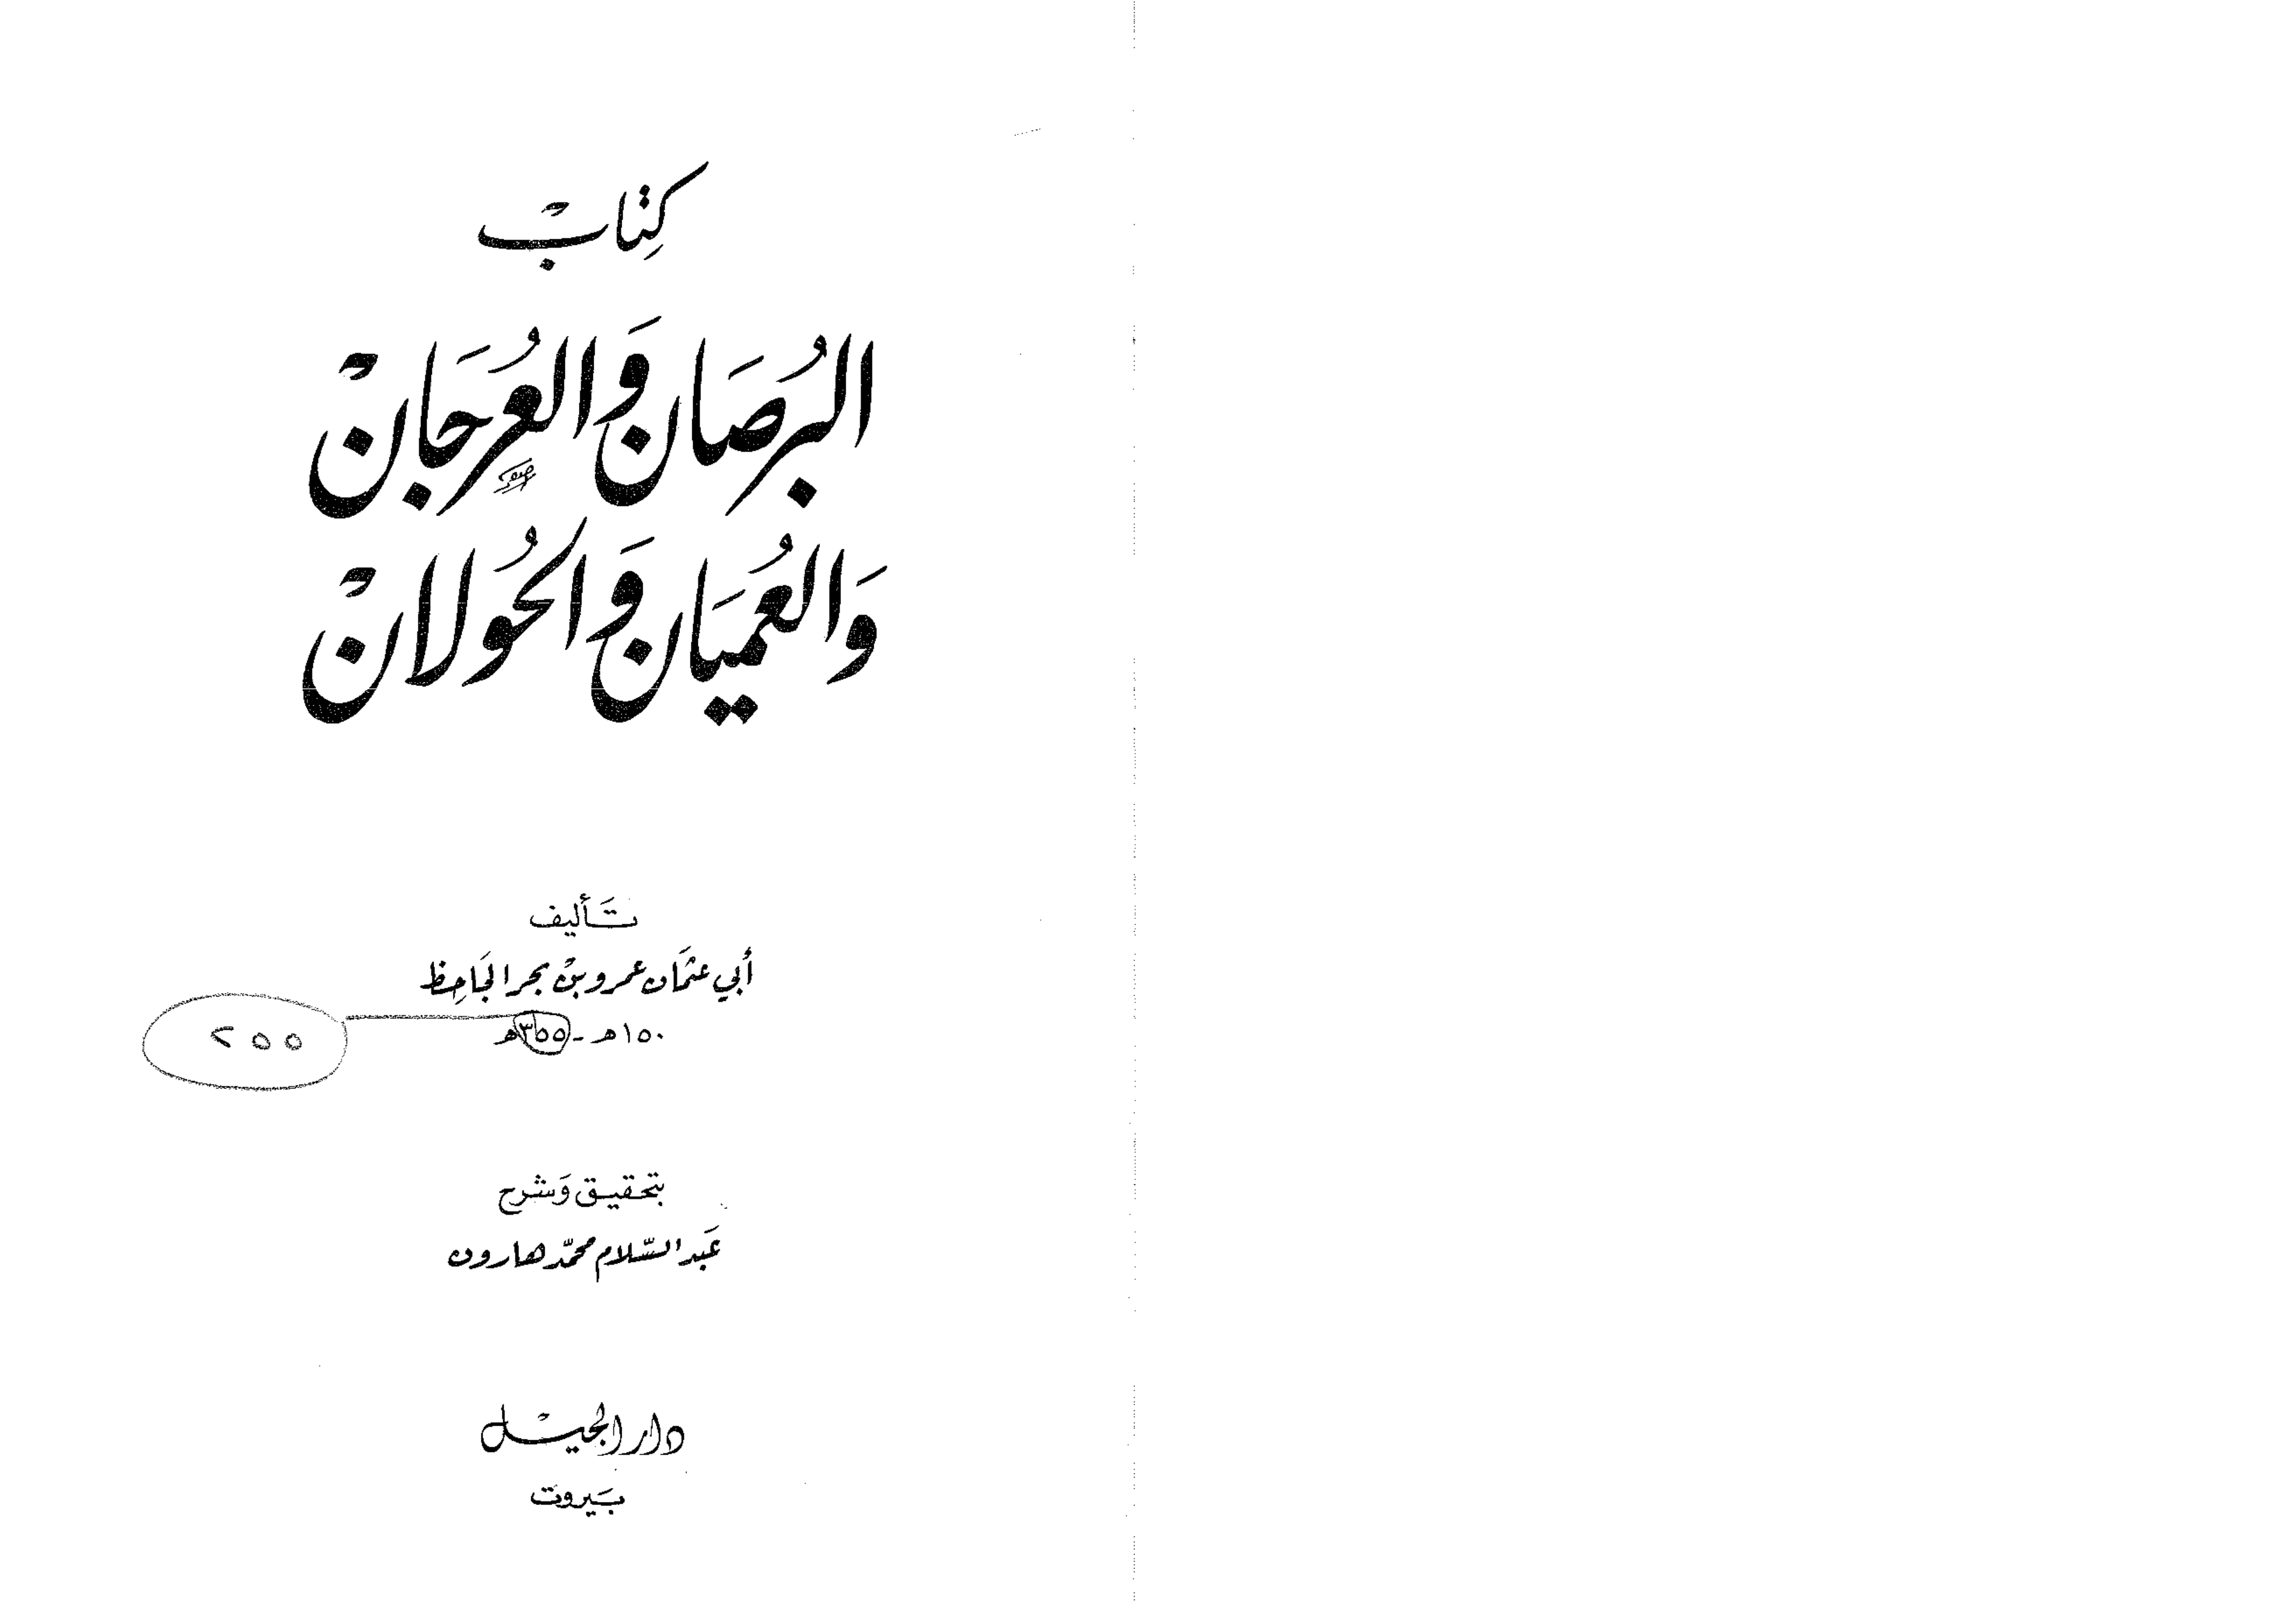 كِتَابْ
البُرصَان وَالعُرجَانْ
وَالعُميَان وَالحُولانْ
تَأليف
أَبي عثمَان عمرو بنْ بحر الجَاحِظ
١٥٠هـ - ٣٥٥هـ
٢٥٥
بتحقيق وَشرح
عَبد السّلام محمّد هارون
دار الجيْل
بَيروت